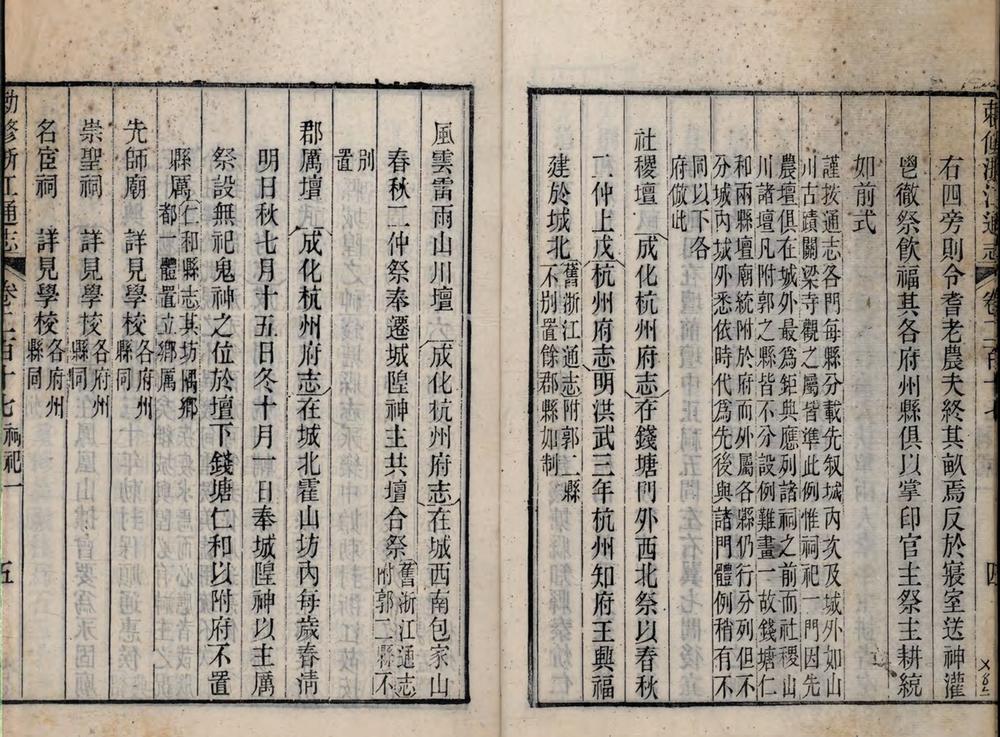 敕修浙江通志 卷二百十七 四
右四旁則令耆老農夫終其畝焉反於寢室送神灌
鬯徹祭飲福其各府州縣俱以掌印官主祭主耕統
如前式
謹按通志各門每縣分載先叙城內次及城外如山
川古蹟關梁寺觀之屬皆準此例惟祠祀一門因先
農壇俱在城外最為鉅典應列諸祠之前而社稷山
川諸壇凡附郭之縣皆不分設例難畫一故錢塘仁
和兩縣壇廟統附於府而外屬各縣仍行分列但不
分城內城外悉依時代為先後與諸門體例稍有不
同以下各
府倣此
社稷壇 成化杭州府志在錢塘門外西北祭以春秋
二仲上戊杭州府志明洪武三年杭州知府王興福
建於城北舊浙江通志附郭二縣
不別置餘郡縣如制
風雲雷雨山川壇 成化杭州府志在城西南包家山
春秋二仲祭奉遷城隍神主共壇合祭舊浙江通志
附郭二縣不
別
置
郡厲壇 成化杭州府志在城北霍山坊內每歲春淸
明日秋七月十五日冬十月一日奉城隍神以主厲
祭設無祀鬼神之位於壇下錢塘仁和以附府不置
縣厲仁和縣志其坊隅鄉
都一體置立鄉厲
先師廟 詳見學校各府州
縣同
崇聖祠 詳見學校各府州
縣同
名宦祠 詳見學校各府州
縣同
敕修浙江通志 卷二百十七 祠祀一 五